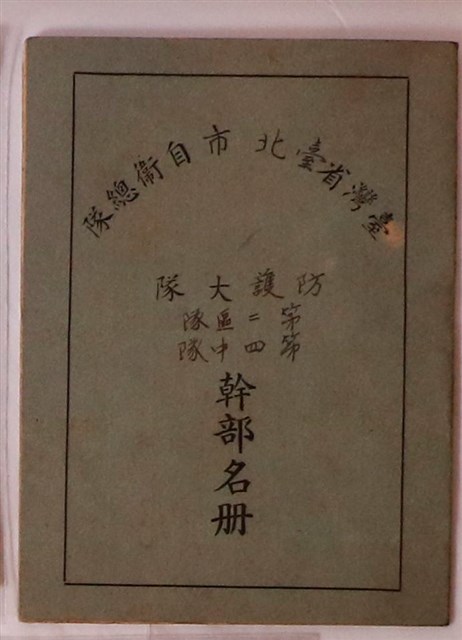 臺灣省臺北市自衛總隊
防護大隊
第二區隊
第四中隊
幹部名册